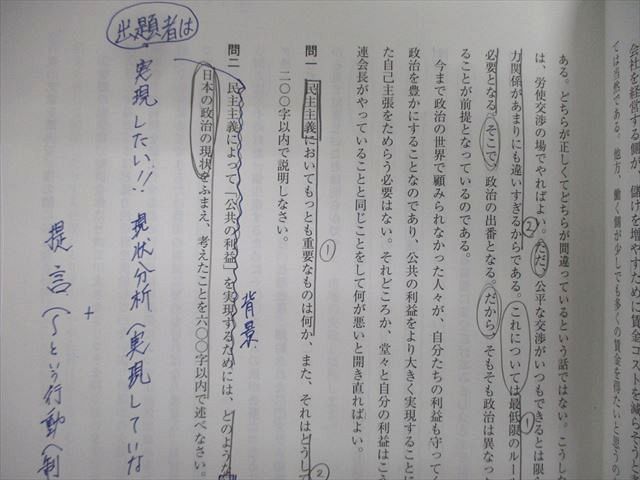 会社を経営する側が、儲けを増やすために賃金コストを減らそうとする
ては当然である。他方、働く側が少しでも多くの賃金を得たいと思うのが
ある。どちらが正しくてどちらが間違っているという話ではない。こうし
は、労使交渉の場でやればよい。ただ、公平な交渉がいつもできるとは限
力関係があまりにも違いすぎるからである。これについては最低限のルール
必要となる。そこで、政治の出番となる。だから、そもそも政治は異なっ
ることが前提となっているのである。
今まで政治の世界で顧みられなかった人々が、自分たちの利益も守ってく
政治を豊かにすることなのであり、公共の利益をより大きく実現すること
た自己主張をためらう必要はない。それどころか、堂々と自分の利益はこう
連会長がやっていることと同じことをして何が悪いと開き直ればよい。
② ①
問一 民主主義においてもっとも重要なものは何か、また、それはどうして
二〇〇字以内で説明しなさい。
① ②
問二 民主主義によって「公共の利益」を実現するためには、どのような
日本の政治の現状をふまえ、考えたことを六〇〇字以内で述べなさい。
背景
出題者は
実現したい!! 現状分析(実現していな
+
提言(〜という行動(制